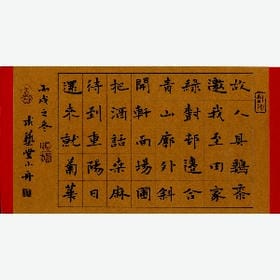 故人具鷄黍
邀我至田家
綠樹邨邊合
青山廓外斜
開軒面場圃
把酒話桑麻
待到重陽日
還来就菊華
丙戌之冬
藝堂小舟